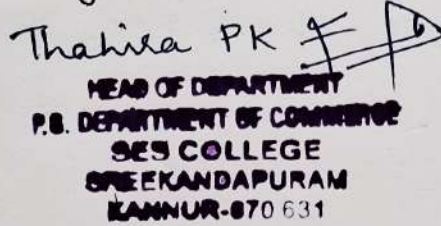 Thahira PK
HEAD OF DEPARTMENT
P.G. DEPARTMENT OF COMMERCE
SES COLLEGE
SREEKANDAPURAM
KANNUR-670 631